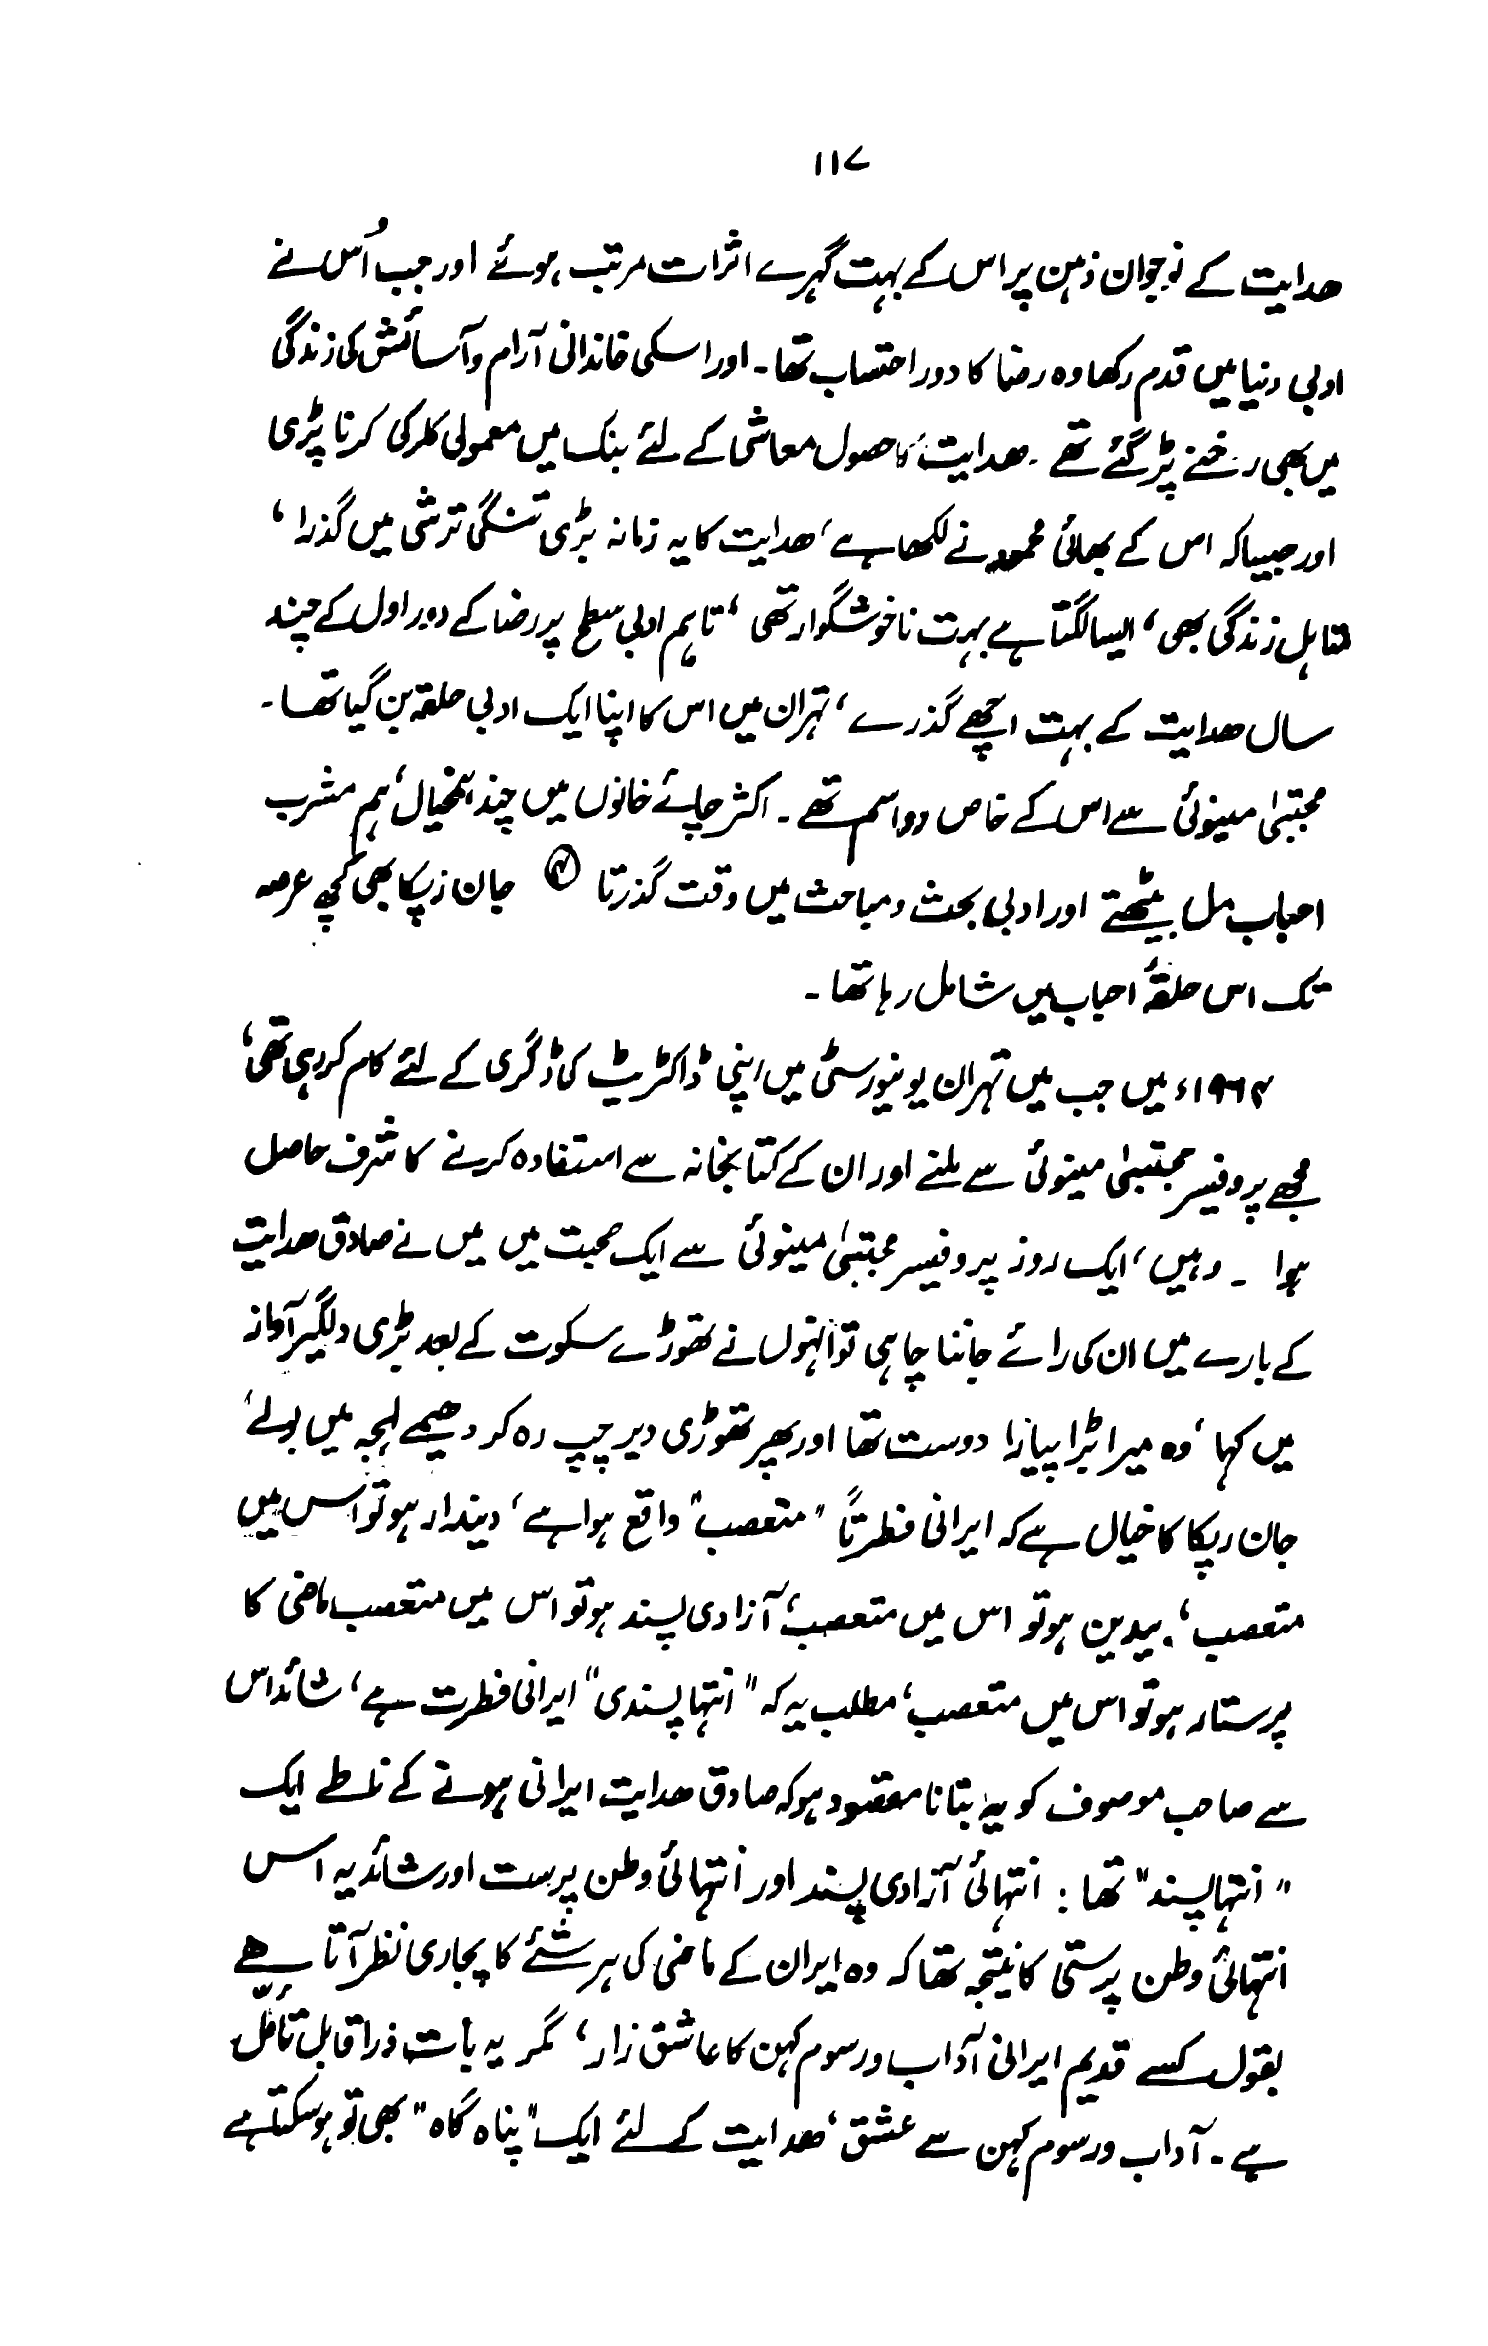 ۱۱۷
ھدایت کے نوجوان ذہن پر اس کے بہت گہرے اثرات مرتب ہوئے اور جب اُس نے
ادبی دنیا میں قدم رکھا وہ رضا کا دور احتساب تھا۔ اور اسکی خاندانی آرام و آسائش کی زندگی
میں بھی رخنے پڑ گئے تھے۔ ھدایت کا حصول معاشی کے لئے بنک میں معمولی کلرکی کرنا پڑی
اور جیسا کہ اس کے بھائی محمود نے لکھا ہے، ھدایت کا یہ زمانہ بڑی تنگی ترشی میں گذرا،
متاہل زندگی بھی، ایسا لگتا ہے بہت ناخوشگوار تھی، تاہم ادبی سطح پر رضا کے دور اول کے چند
سال ھدایت کے بہت اچھے گذرے، تہران میں اس کا اپنا ایک ادبی حلقہ بن گیا تھا۔
مجتبیٰ مینوئی سے اس کے خاص رواسم تھے۔ اکثر چائے خانوں میں چند ہمخیال، ہم مشرب
احباب مل بیٹھتے اور ادبی بحث و مباحث میں وقت گذرتا جان زپکا بھی کچھ عرصہ
تک اس حلقۂ احباب میں شامل رہا تھا۔
۱۹۶۲ء میں جب میں تہران یونیورسٹی میں اپنی ڈاکٹریٹ کی ڈگری کے لئے کام کر رہی تھی،
مجھے پروفیسر مجتبیٰ مینوئی سے ملنے اور ان کے کتابخانہ سے استفادہ کرنے کا شرف حاصل
ہوا ۔ وہیں، ایک روز پروفیسر مجتبیٰ مینوئی سے ایک صحبت میں میں نے صادق ھدایت
کے بارے میں ان کی رائے جاننا چاہی تو انہوں نے تھوڑے سکوت کے بعد بڑی دلگیر آواز
میں کہا، وہ میرا بڑا پیارا دوست تھا اور پھر تھوڑی دیر چپ رہ کر دھیمے لہجہ میں بولے،
جان رپکا کا خیال ہے کہ ایرانی فطرتاً "متعصب" واقع ہوا ہے، دیندار ہو تو اس میں
متعصب، بیدین ہو تو اس میں متعصب، آزادی پسند ہو تو اس میں متعصب ماضی کا
پرستار ہو تو اس میں متعصب، مطلب یہ کہ "انتہا پسندی" ایرانی فطرت ہے، شائد اس
سے صاحب موصوف کو یہ بتانا مقصود ہو کہ صادق ھدایت ایرانی ہونے کے ناطے ایک
"انتہا پسند" تھا : انتہائی آزادی پسند اور انتہائی وطن پرست اور شائد یہ اس
انتہائی وطن پرستی کا نتیجہ تھا کہ وہ ایران کے ماضی کی ہر شئے کا پجاری نظر آتا ہے
بقول کسے قدیم ایرانی آداب و رسوم کہن کا عاشق زار، مگر یہ بات ذرا قابل تامل
ہے۔ آداب و رسوم کہن سے عشق، ھدایت کے لئے ایک "پناہ گاہ" بھی تو ہو سکتا ہے